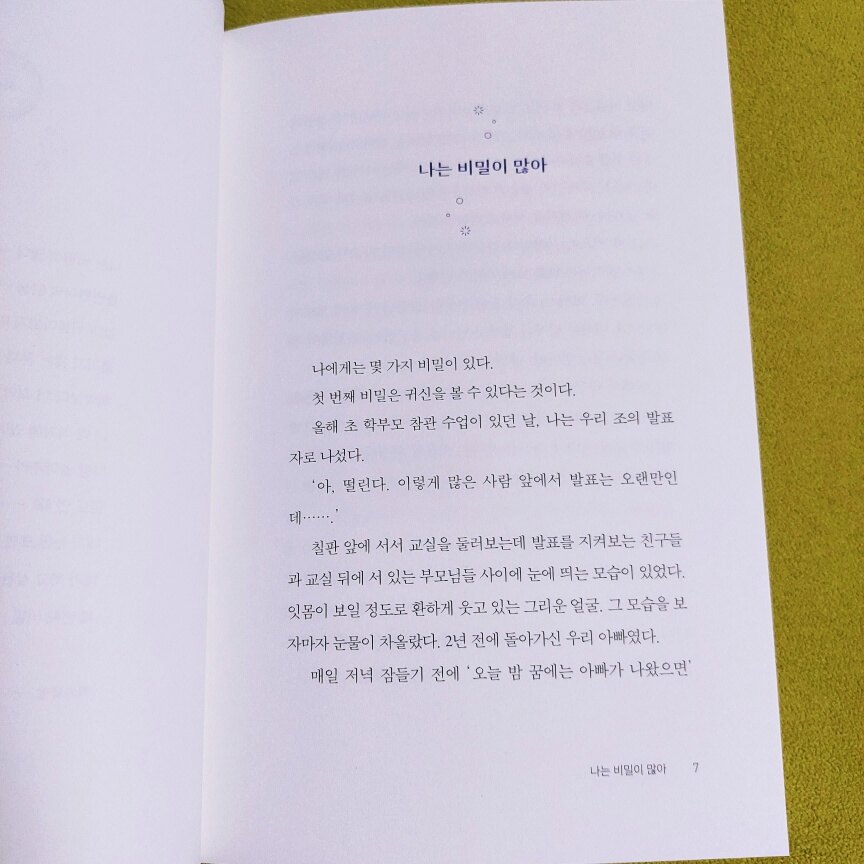 나는 비밀이 많아
나에게는 몇 가지 비밀이 있다.
첫 번째 비밀은 귀신을 볼 수 있다는 것이다.
올해 초 학부모 참관 수업이 있던 날, 나는 우리 조의 발표
자로 나섰다.
‘아, 떨린다. 이렇게 많은 사람 앞에서 발표는 오랜만인
데…….’
칠판 앞에 서서 교실을 둘러보는데 발표를 지켜보는 친구들
과 교실 뒤에 서 있는 부모님들 사이에 눈에 띄는 모습이 있었다.
잇몸이 보일 정도로 환하게 웃고 있는 그리운 얼굴. 그 모습을 보
자마자 눈물이 차올랐다. 2년 전에 돌아가신 우리 아빠였다.
매일 저녁 잠들기 전에 ‘오늘 밤 꿈에는 아빠가 나왔으면’
나는 비밀이 많아 7